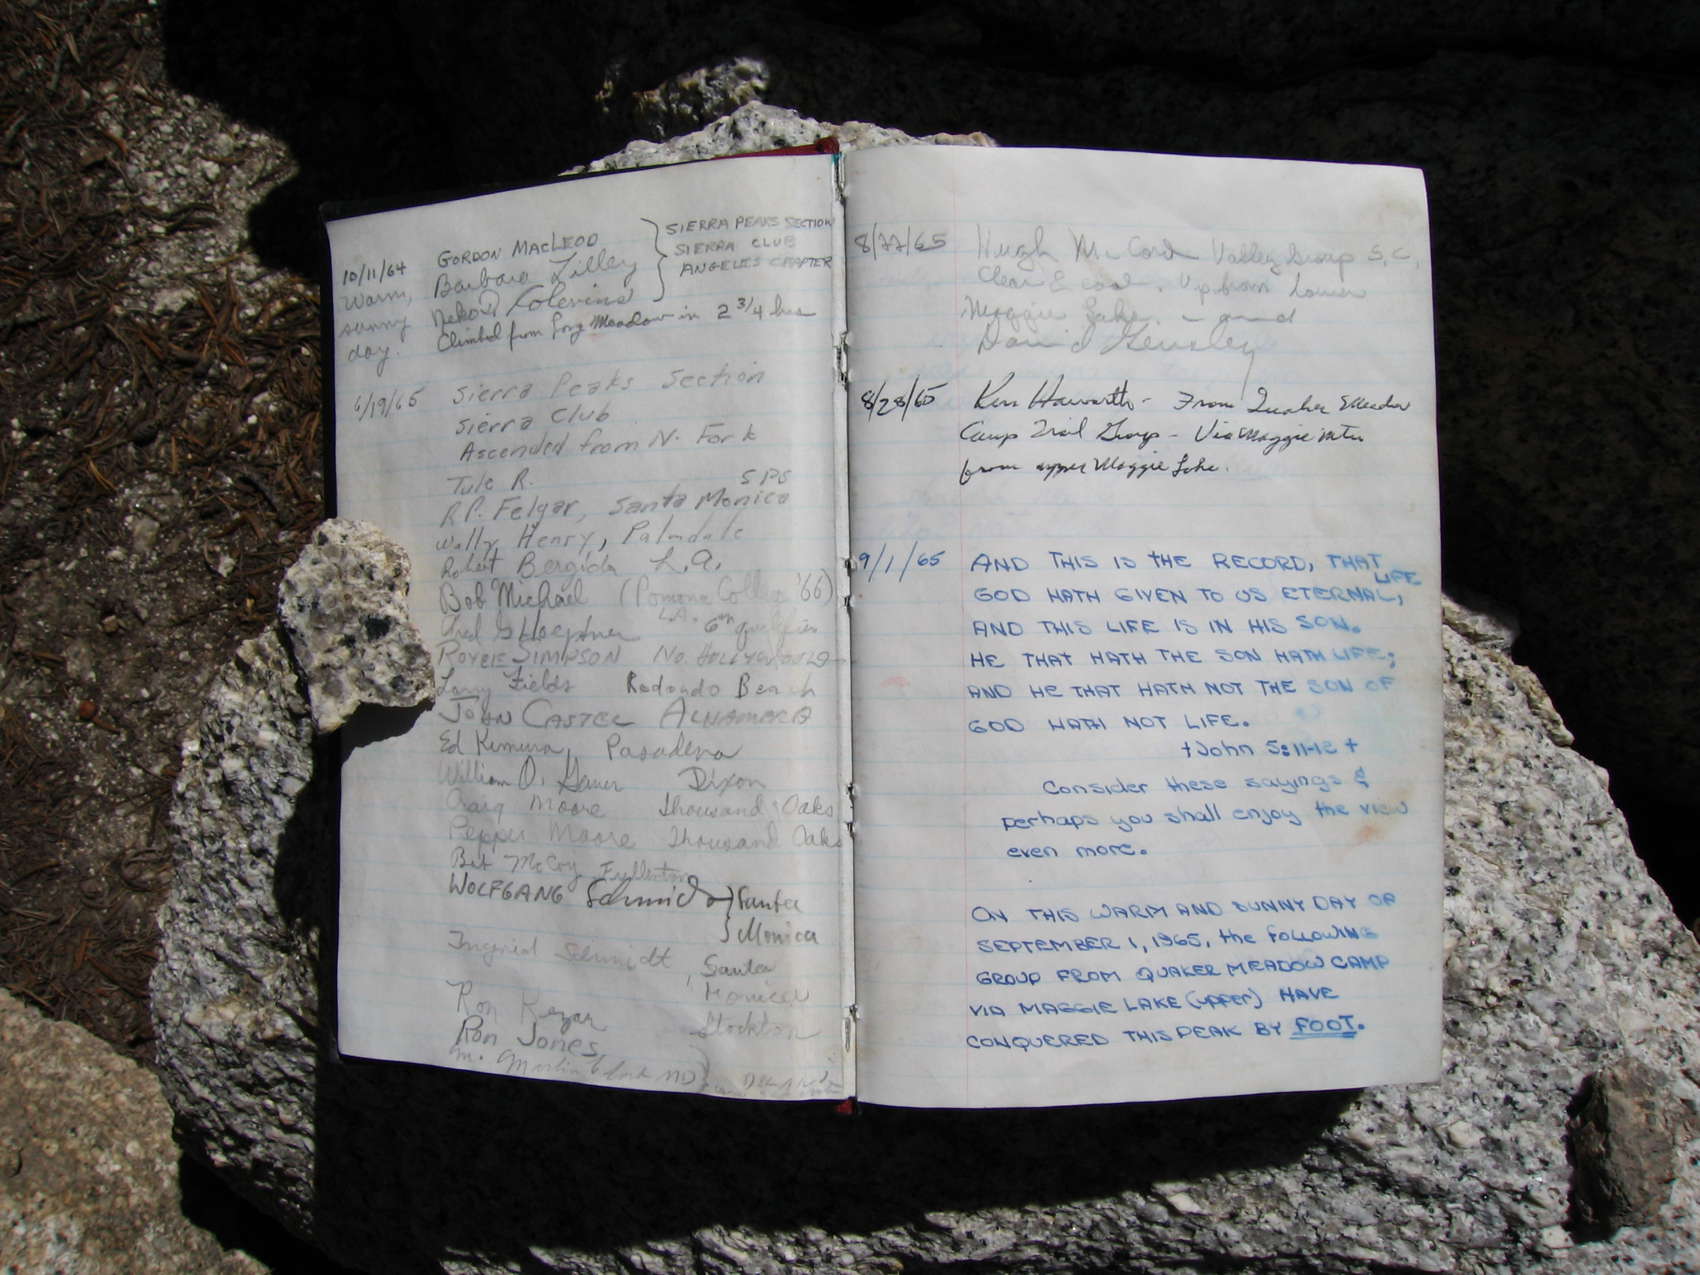 10/11/64
Warm,
sunny
day.
GORDON MACLEOD
Barbara Lilley
SIERRA PEAKS SECTION
SIERRA CLUB
ANGELES CHAPTER
Climbed from Long Meadow in 2 3/4 hrs
6/19/65 Sierra Peaks Section
Sierra Club
Ascended from N. Fork
Tule R. SPS
R.P. Felgar, Santa Monica
Wally Henry, Palmdale
Robert Bergida L.A.
Bob Michael (Pomona College '66)
L.A.
ROYCE SIMPSON NO. HOLLYWOOD
Larry Fields Redondo Beach
JOHN CASTEL
Ed Kimura, Pasadena
William O. Dixon
Craig Moore Thousand Oaks
Pepper Moore Thousand Oaks
McCoy Fullerton
WOLFGANG Schmidt } Santa
Monica
Ingrid Schmidt, Santa
Monica
Ron Stockton
Ron Jones
8/22/65 Hugh McCord Valley Group S.C.
Clear & cool. Up from Lower
Maggie Lake. - and
David
8/28/65 Ken - From Quaker Meadow
Camp Trail Group - Via Maggie
from upper Maggie Lake.
9/1/65 AND THIS IS THE RECORD, THAT
GOD HATH GIVEN TO US ETERNAL LIFE,
AND THIS LIFE IS IN HIS SON.
HE THAT HATH THE SON HATH LIFE;
AND HE THAT HATH NOT THE SON OF
GOD HATH NOT LIFE.
†John 5:11-12 †
Consider these sayings &
perhaps you shall enjoy the view
even more.
ON THIS WARM AND SUNNY DAY OF
SEPTEMBER 1, 1965, the FOLLOWING
GROUP FROM QUAKER MEADOW CAMP
VIA MAGGIE LAKE (upper) HAVE
CONQUERED THIS PEAK BY FOOT.